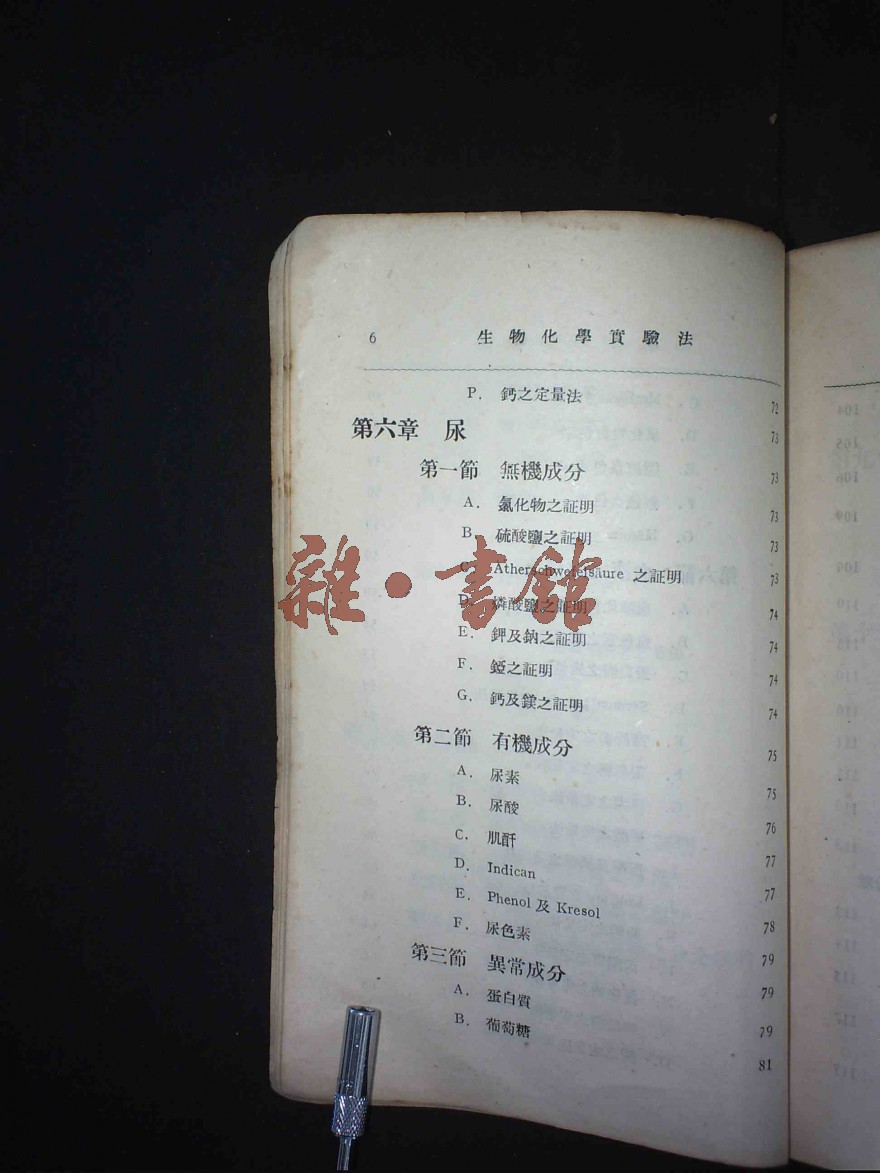 6 生物化學實驗法
P. 鈣之定量法 72
第六章 尿 73
第一節 無機成分 73
A. 氯化物之証明 73
B. 硫酸鹽之証明 73
C. Atherschwefersäure 之証明 73
D. 磷酸鹽之証明 74
E. 鉀及鈉之証明 74
F. 銨之証明 74
G. 鈣及鎂之証明 74
第二節 有機成分 75
A. 尿素 75
B. 尿酸 76
C. 肌酐 77
D. Indican 77
E. Phenol 及 Kresol 78
F. 尿色素 79
第三節 異常成分 79
A. 蛋白質 79
B. 葡萄糖 81
雜·書館
104
105
106
109